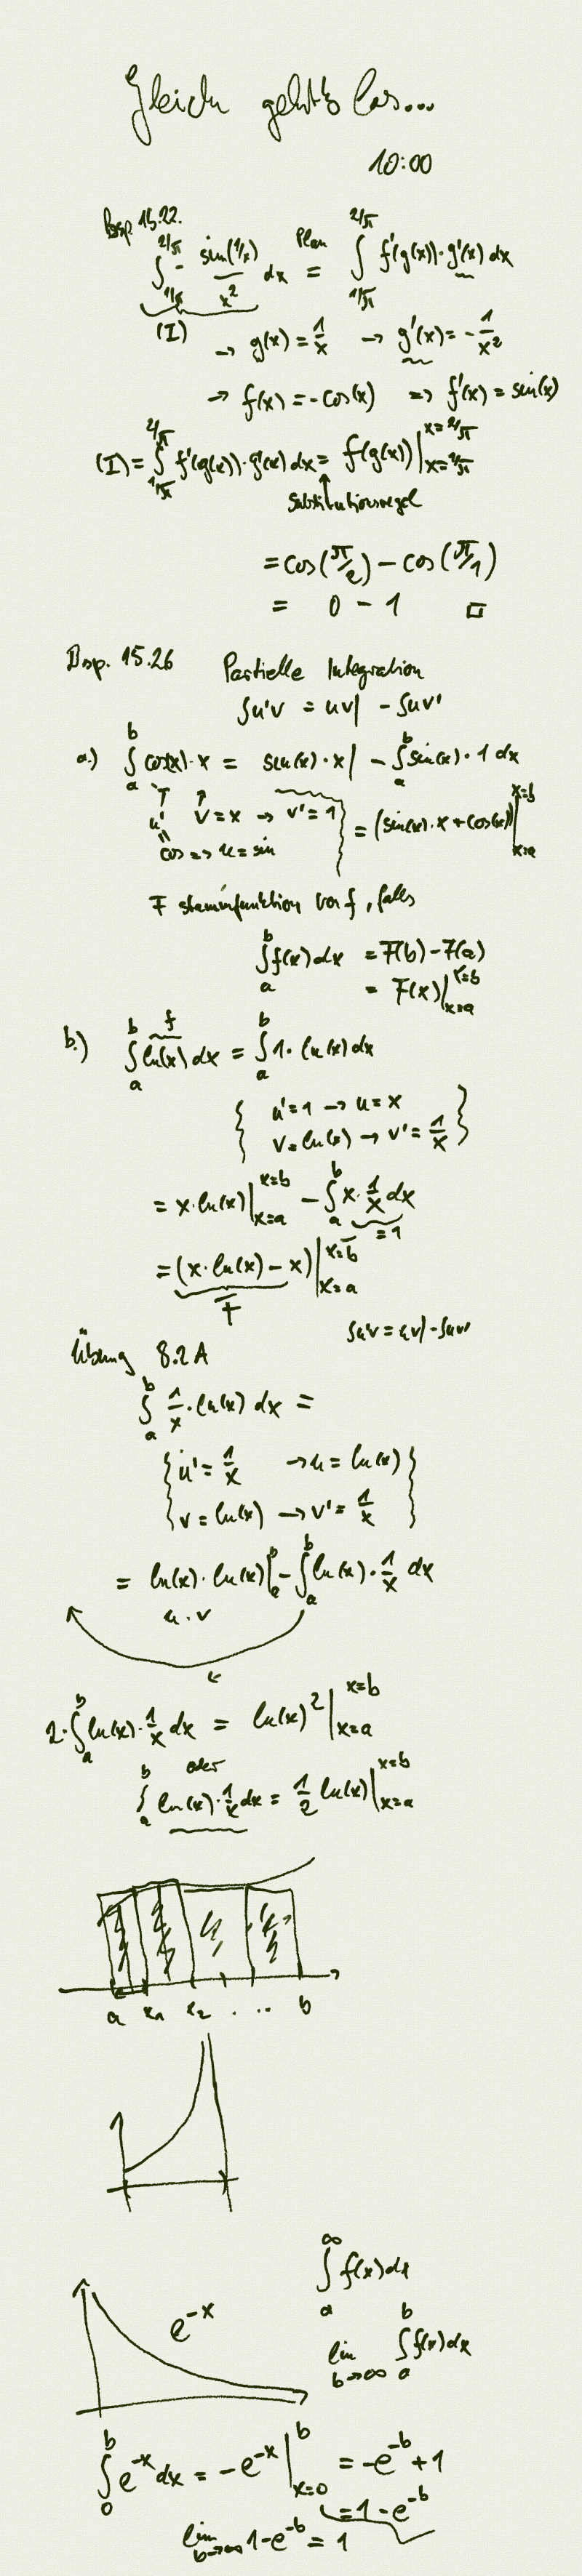 Gleich geht's los...
10:00
Bsp. 15.22.
∫_{1/π}^{2/π} - sin(1/x)/x² dx = (Plan) ∫_{1/π}^{2/π} f'(g(x))·g'(x) dx
(I)
→ g(x) = 1/x → g'(x) = -1/x²
→ f(x) = -cos(x) ⇒ f'(x) = sin(x)
(I) = ∫_{1/π}^{2/π} f'(g(x))·g'(x) dx = f(g(x))|_{x=1/π}^{x=2/π}
Substitutionsregel
= cos(π/2) - cos(π/1)
= 0 - 1 □
Bsp. 15.26 Partielle Integration
∫u'v = uv| - ∫uv'
a.) ∫_a^b cos(x)·x = sin(x)·x| - ∫_a^b sin(x)·1 dx
u' v=x → v'=1 = (sin(x)·x + cos(x))|_{x=a}^{x=b}
cos ⇒ u = sin
F stammfunktion von f, falls
∫_a^b f(x) dx = F(b) - F(a)
= F(x)|_{x=a}^{x=b}
f
b.) ∫_a^b ln(x) dx = ∫_a^b 1·ln(x) dx
{ u'=1 → u=x
v=ln(x) → v'=1/x }
= x·ln(x)|_{x=a}^{x=b} - ∫_a^b x·1/x dx
=1
= (x·ln(x) - x)|_{x=a}^{x=b}
F
∫u'v = uv| - ∫uv'
Übung 8.2A
∫_a^b 1/x·ln(x) dx =
{ u' = 1/x → u = ln(x)
v = ln(x) → v' = 1/x }
= ln(x)·ln(x)|_a^b - ∫_a^b ln(x)·1/x dx
u·v
2·∫_a^b ln(x)·1/x dx = ln(x)²|_{x=a}^{x=b}
oder
∫_a^b ln(x)·1/x dx = 1/2 ln(x)|_{x=a}^{x=b}
a x₁ x₂ . .. b
∫_a^∞ f(x) dx
e^{-x}
lim_{b→∞} ∫_a^b f(x) dx
∫_0^b e^{-x} dx = -e^{-x}|_{x=0}^b = -e^{-b} + 1
= 1 - e^{-b}
lim_{b→∞} 1 - e^{-b} = 1